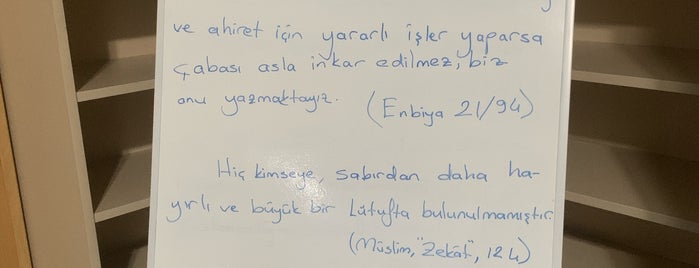 ve ahiret için yararlı işler yaparsa
çabası asla inkar edilmez, biz
onu yazmaktayız. (Enbiya 21/94)
Hiç kimseye, sabırdan daha ha-
yırlı ve büyük bir Lütufta bulunulmamıştır.
(Müslim, "Zekât", 124)